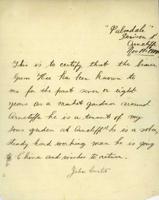 "Palmdale"
Arncliffe
This is to certify that the bearer
Gum Hee has been known to
me for the past seven or eight
years as a market gardener around
Arncliffe he is a tenant of my
own garden at Arncliffe he is a sober,
steady hard working man he is going
to China and wishes to return.
John